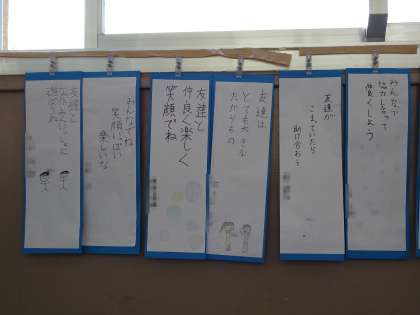 みんなで
協力しあって
くしよう
友達が
こまっていたら
助け合おう
友達は
とても大きな
たからもの
友達と
仲良く楽しく
笑顔でね
みんなでね
笑顔いっぱい
楽しいな
友達と
なかよくいっしょに
遊ぼうね